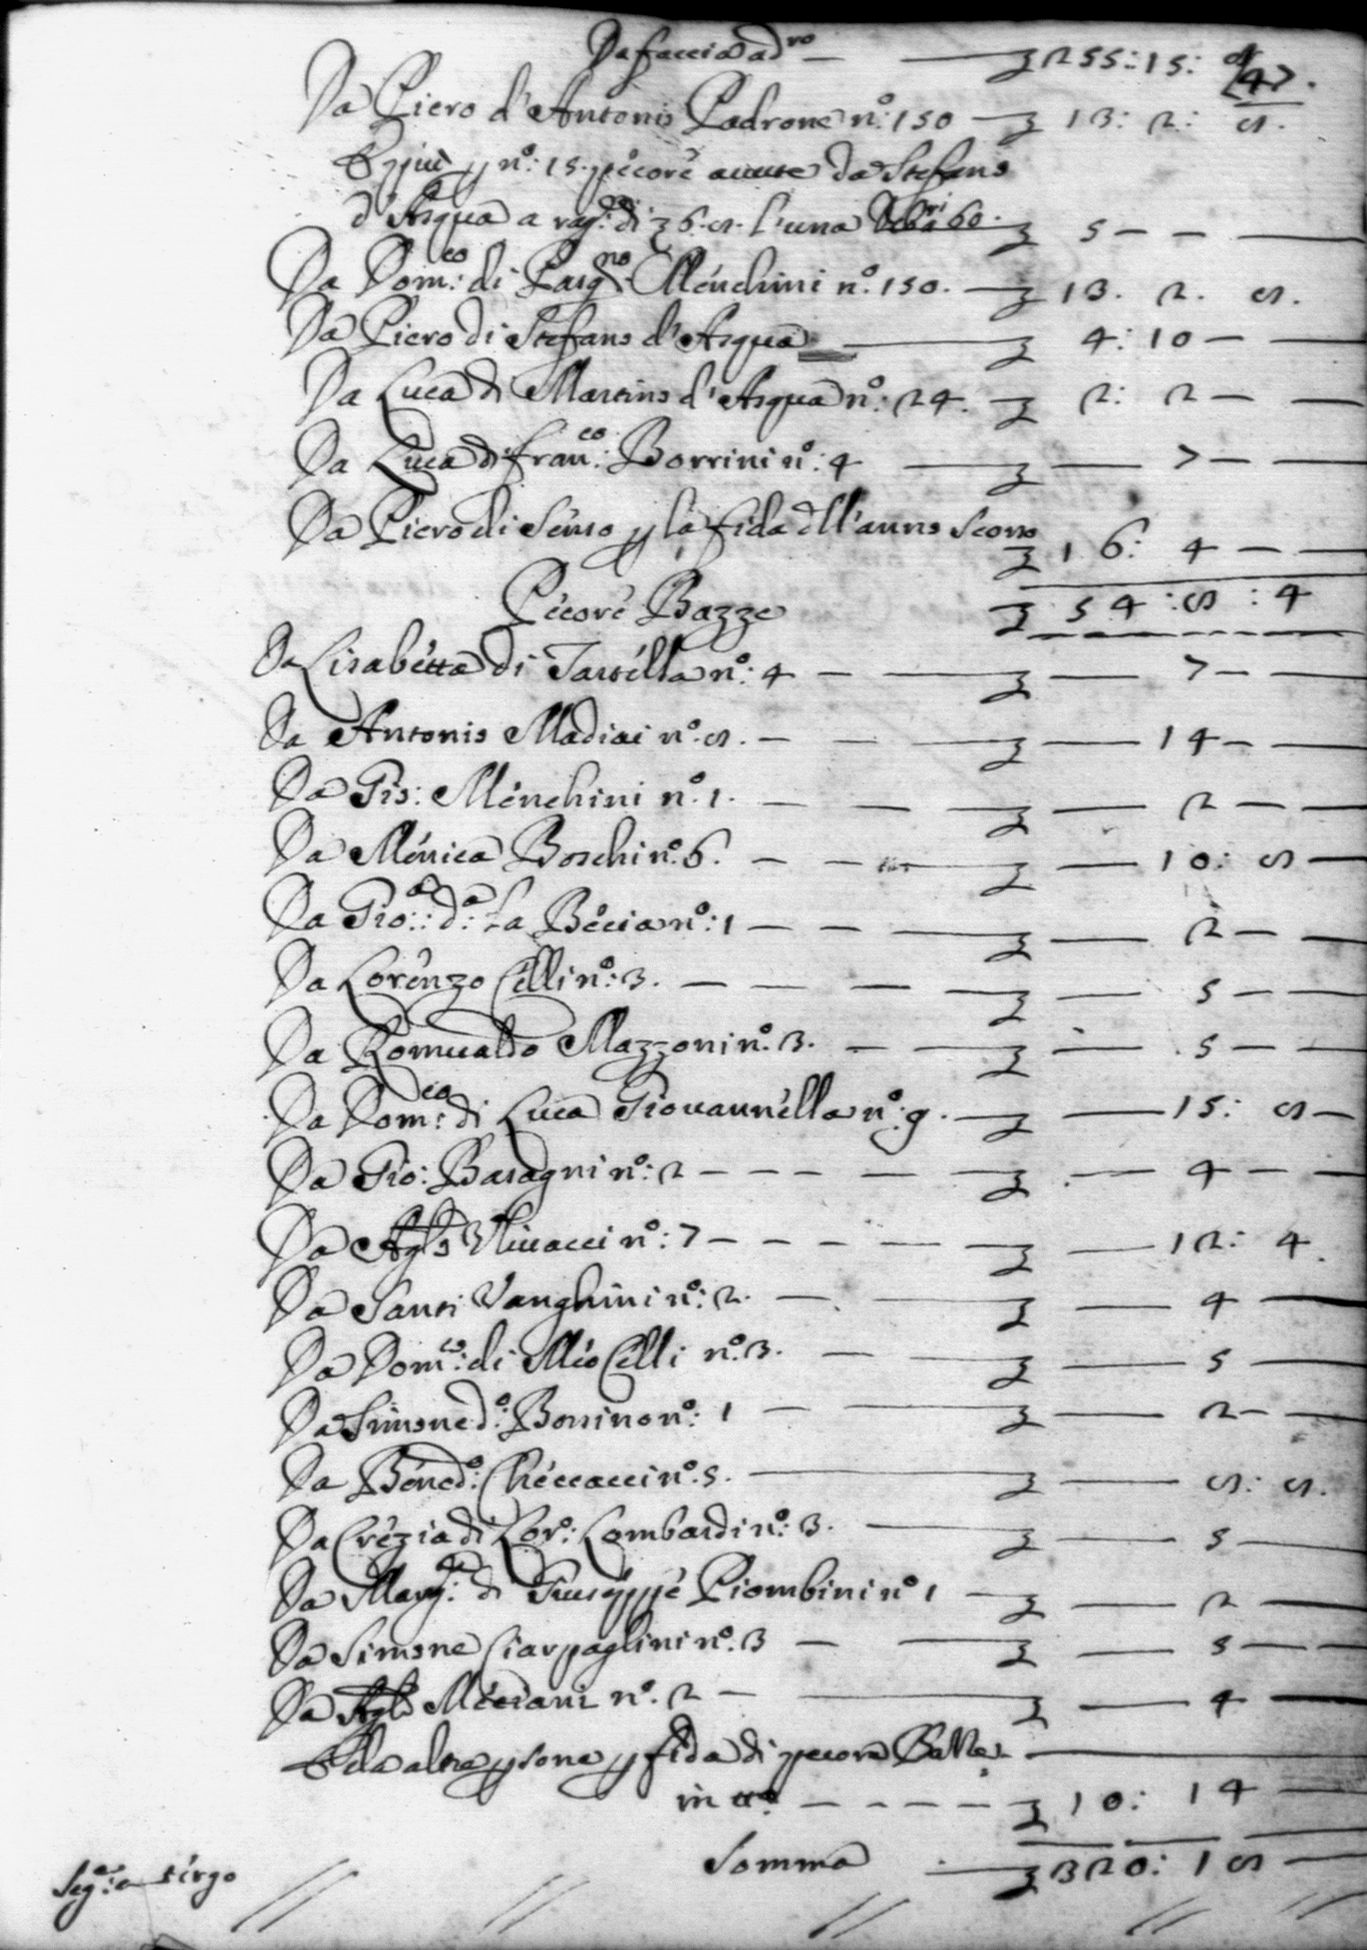 Da faccia adro — — ʒ 255: 15: 8
47.
Da Piero d'Antonio Padrone n.o: 150 — ʒ 13: 2: 8.
E più p n.o: 15. pecore auute da Stefano
d'Asqua a rag.e di ʒ 6. 8. l'una — ʒ 5 — — —
Da Dom.co: di Pasq.no Menchini n.o: 150. — ʒ 13. 2. 8.
Da Piero di Stefano d'Asqua — ʒ 4: 10 — —
Da Luca di Martino d'Asqua n.o: 24. — ʒ 2: 2 — —
Da Luca di Fran.co: Borrini n.o: 4 — ʒ — 7 — —
Da Piero di Senso p la fida dll'anno scorso
ʒ 16: 4 — —
Pecore Bazze ʒ 54: 8: 4
Da Lisabetta di Tarsella n.o: 4 — — ʒ — 7 — —
Da Antonio Madiai n.o: 8. — — — ʒ — 14 — —
Da Gio: Menchini n.o: 1. — — — ʒ — 2 — —
Da Menica Boschi n.o: 6. — — — ʒ — 10: 8 —
Da Gio:a: d.a: la Becia n.o: 1 — — — ʒ — 2 — —
Da Lorenzo Celli n.o: 3. — — — — ʒ — 5 — —
Da Romualdo Mazzoni n.o: 3. — — ʒ — 5 — —
Da Dom.co: di Luca Giouannella n.o: 9. — ʒ — 15: 8 —
Da Gio: Baragni n.o: 2 — — — — — ʒ — 4 — —
Da Ag.lo Vliuacci n.o: 7 — — — — — ʒ — 12: 4.
Da Santi Vanghini n.o: 2. — — — ʒ — 4 —
Da Dom.co: di Meo Celli n.o: 3. — — ʒ — 5 —
Da Simone d.o: Borrino n.o: 1 — — ʒ — 2 — —
Da Bened.o: Checcacci n.o: 5. — ʒ — 8: 8.
Da Crezia di Lor.o: Lombardi n.o: 3. — ʒ — 5 —
Da Marg.ta: di Giuseppe Piombini n.o 1 — ʒ — 2 —
Da Simone Ciarpaglini n.o: 3 — — ʒ — 5 — —
Da Ag.lo Mecciani n.o: 2 — — ʒ — 4 — —
E da altre psone p fida di pecore Balle. —
in tto: — — — — ʒ 10: 14 —
Somma — ʒ 320: 18 —
Seg.e: a tergo